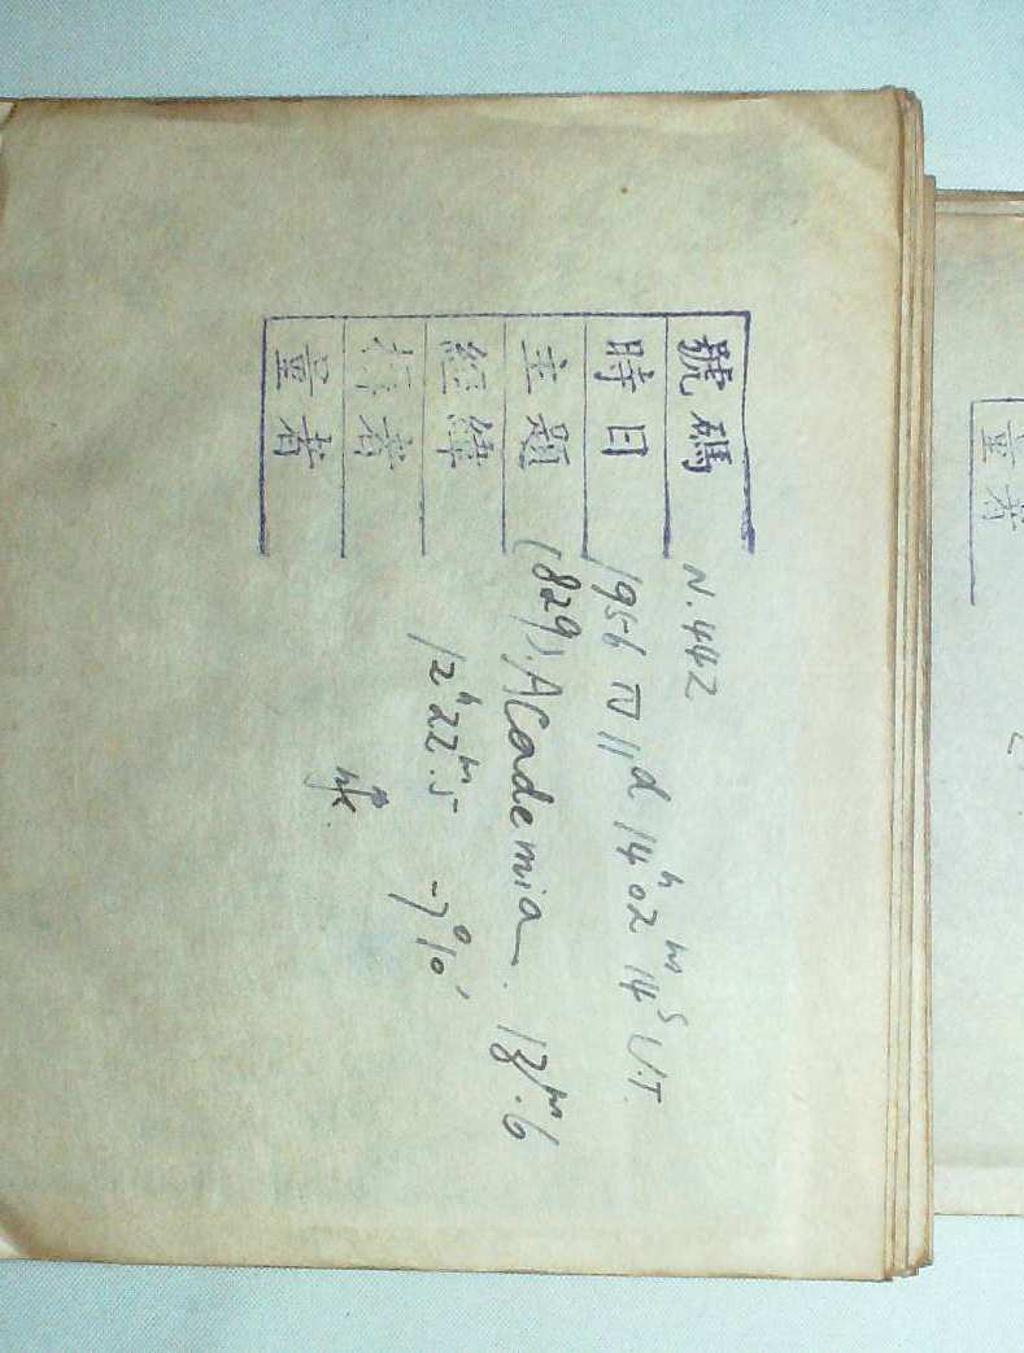 號碼 N.442
時日 1956 IV 11d 14h 02m 14s U.T.
主題 (829) Academia. 13m.6
經緯 12h 22m.5 -7°10'
者
量者
量者